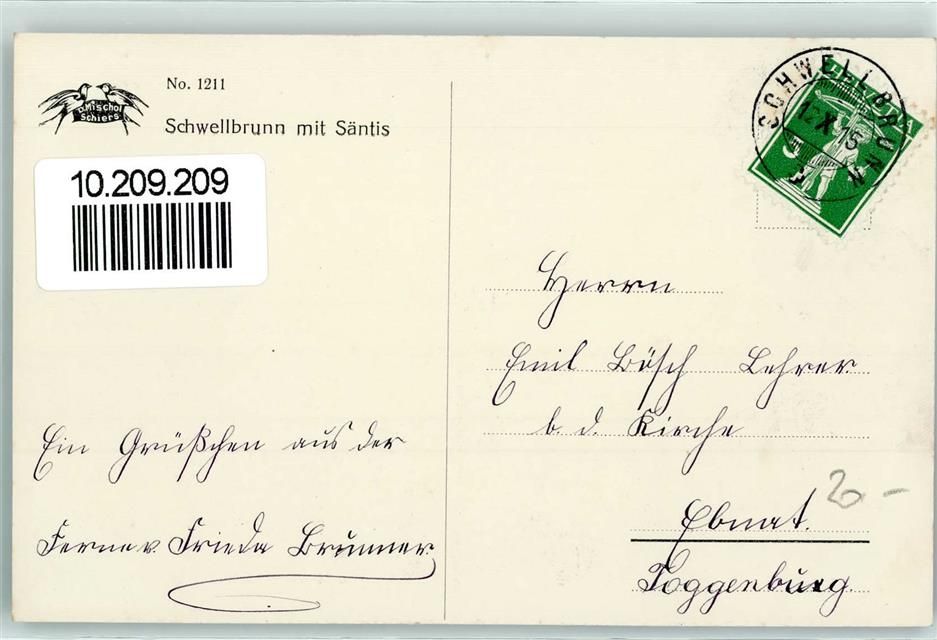 No. 1211
D. Mischol
Schiers
Schwellbrunn mit Säntis
10.209.209
SCHWELLBRUNN
12.X.15
Herrn
Emil Bösch Lehrer
b. d. Kirche
Ebnat.
Toggenburg.
Ein Grüßchen aus der
Ferne v. Frieda Brunner
20 -